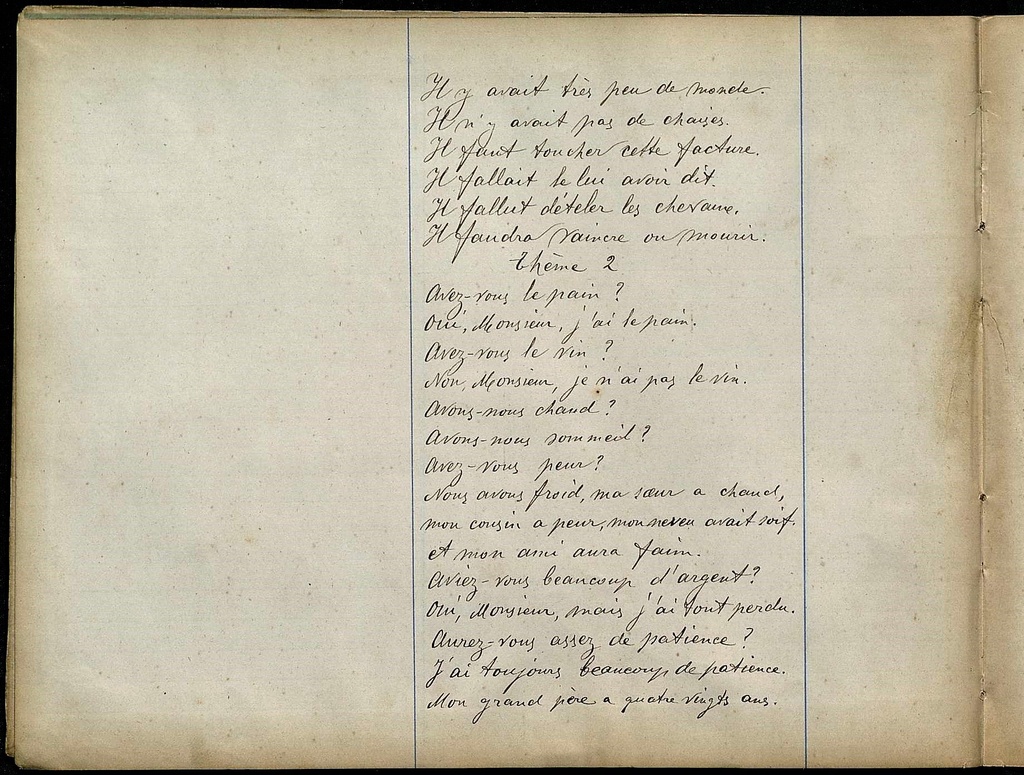 Il y avait très peu de monde.
Il n'y avait pas de chaises.
Il faut toucher cette facture.
Il fallait le lui avoir dit.
Il fallut dételer les chevaux.
Il faudra vaincre ou mourir.
Thème 2
Avez-vous le pain ?
Oui, Monsieur, j'ai le pain.
Avez-vous le vin ?
Non, Monsieur, je n'ai pas le vin.
Avons-nous chaud ?
Avons-nous sommeil ?
Avez-vous peur ?
Nous avons froid, ma sœur a chaud,
mon cousin a peur, mon neveu avait soif
et mon ami aura faim.
Aviez-vous beaucoup d'argent ?
Oui, Monsieur, mais j'ai tout perdu.
Aurez-vous assez de patience ?
J'ai toujours beaucoup de patience.
Mon grand père a quatre vingts ans.